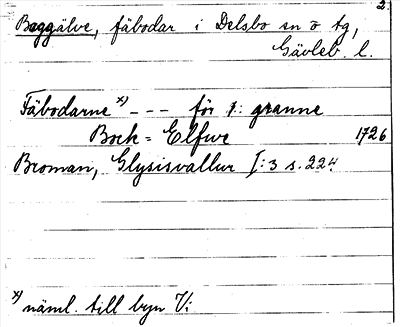 2
Baggälve, fäbodar i Delsbo sn o tg,
Gävleb. l.
Fäbodarne x) - - - för 1: granne
Bock = Elfwe 1726
Broman, Glysisvallur I:3 s. 224.
x) näml. till byn Vi